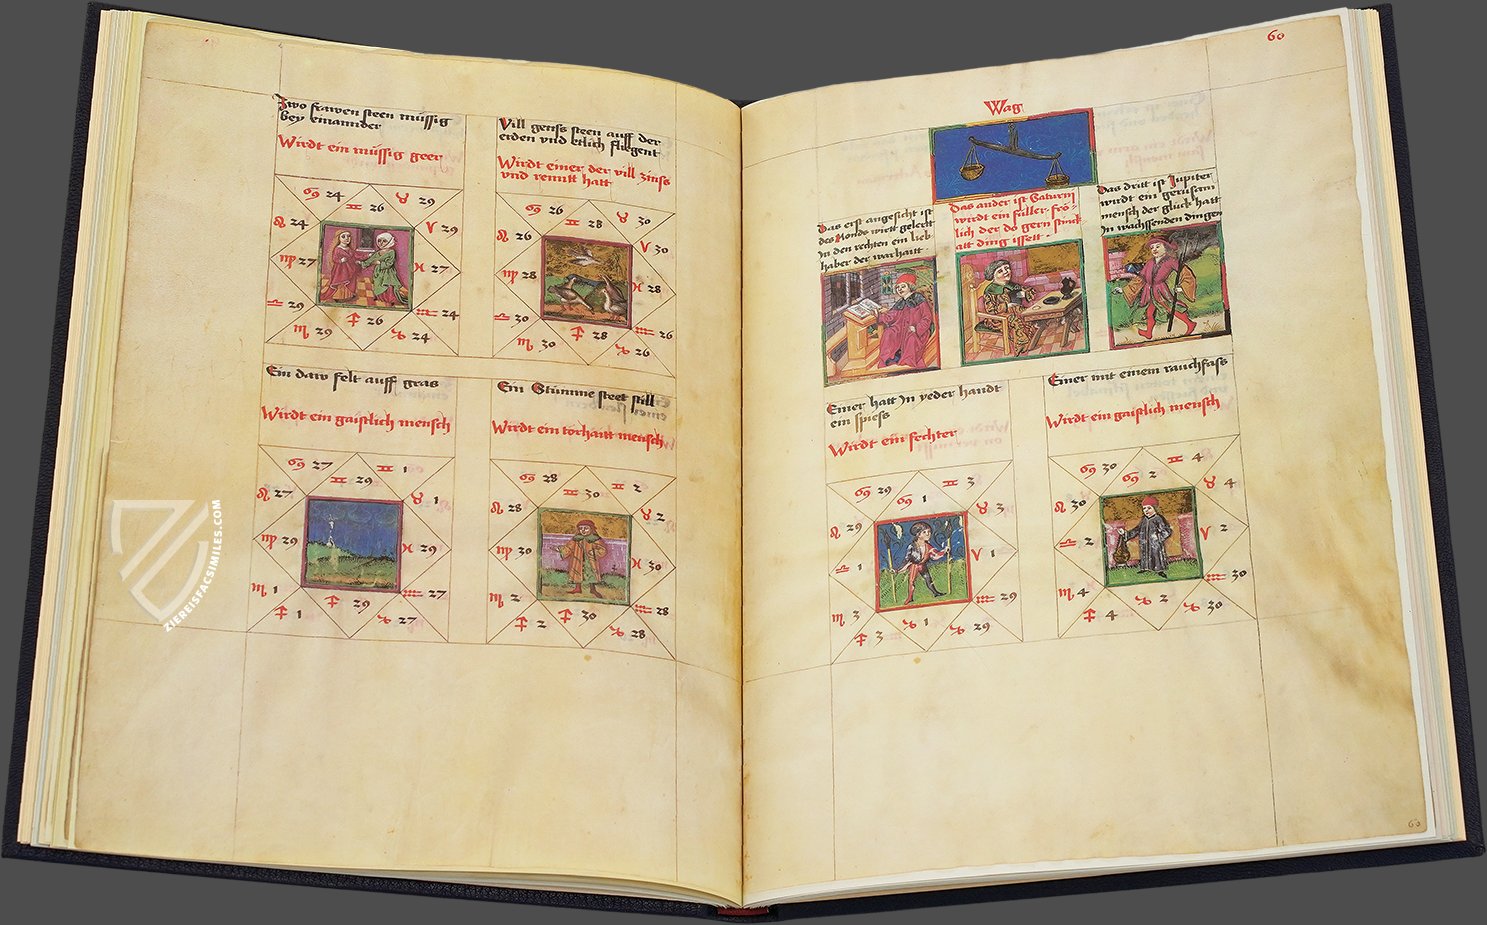 Zwo frawen steen müssig
bey einannder
Wirdt ein müssig geer
♋ 24 ♊ 26 ♉ 29
♌ 24 ♈ 29
♍ 27 ♓ 27
♎ 29 ♒ 24
♏ 29 ♐ 26 ♑ 24
Vill genss steen auff der
erden vnd etlich fliegent
Wirdt einer der vill zinss
vnd rennt hatt
♋ 26 ♊ 28 ♉ 30
♌ 26 ♈ 30
♍ 28 ♓ 28
♎ 30 ♒ 26
♏ 30 ♐ 28 ♑ 26
Ein daw felt auff gras
Wirdt ein gaistlich mensch
♋ 27 ♊ 29 ♊ 1
♌ 27 ♉ 1
♍ 29 ♓ 29
♏ 1 ♒ 27
♐ 1 ♐ 29 ♑ 27
Ein Stumme steet still
Wirdt ein torhatt mensch
♋ 28 ♊ 30 ♊ 2
♌ 28 ♉ 2
♍ 30 ♓ 30
♏ 2 ♒ 28
♐ 2 ♐ 30 ♑ 28
60
Wag
Das erst angesicht ist
des Monds wirtt gelertt
In den rechten ein lieb
haber der warhaitt
Das ander ist Saturni
wirdt ein füller frö-
lich der do gern
att ding issett
Das dritt ist Jupiter
wirdt ein gerusam
mensch der glück hatt
In wachssenden dingen
Einer hatt In yeder handt
ein spiess
Wirdt ein fechter
♋ 29 ♋ 1 ♊ 3
♌ 29 ♉ 3
♎ 1 ♈ 1
♏ 3 ♒ 29
♐ 3 ♑ 1 ♑ 29
Einer mit einem rauchfass
Wirdt ein gaistlich mensch
♋ 30 ♋ 2 ♊ 4
♌ 30 ♉ 4
♎ 2 ♈ 2
♏ 4 ♒ 30
♐ 4 ♑ 2 ♑ 30
60
ZIEREISFACSIMILES.COM